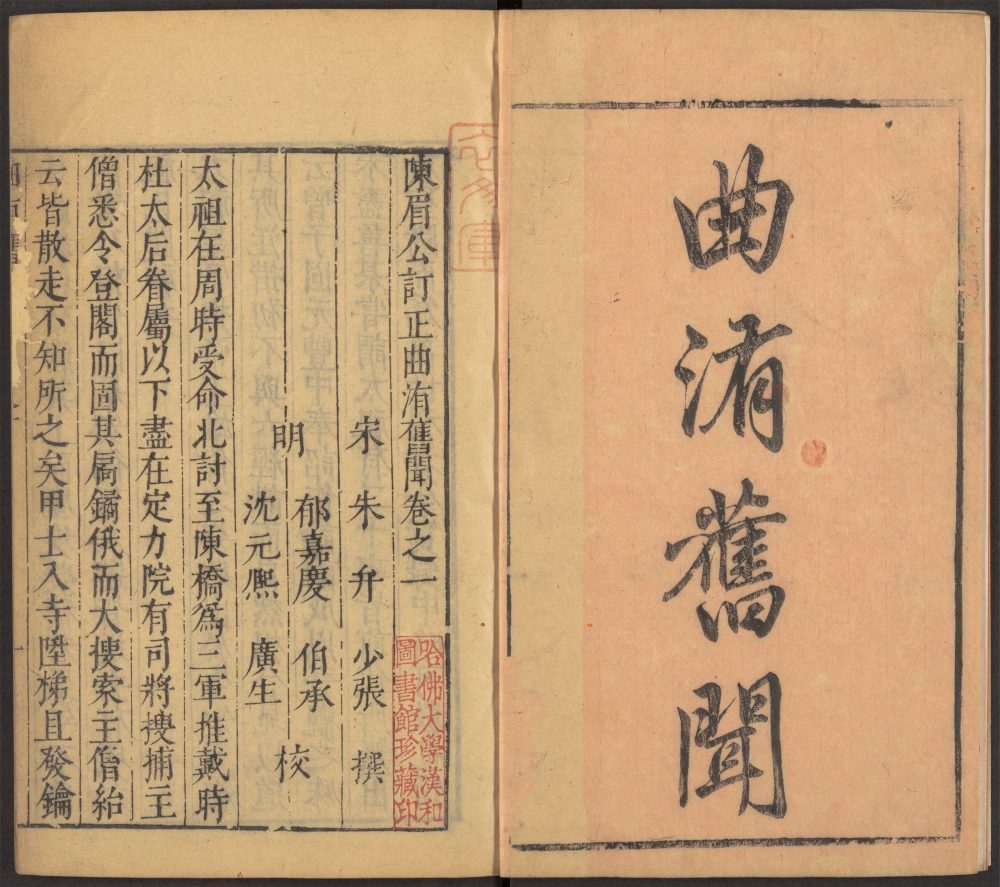 曲洧舊聞
陳眉公訂正曲洧舊聞卷之一
宋 朱弁 少張 撰
明 郁嘉慶 伯承 校
沈元熈 廣生
太祖在周時受命北討至陳橋爲三軍推戴時
杜太后眷屬以下盡在定力院有司將搜捕主
僧悉令登閣而固其扃鐍俄而大搜索主僧紿
云皆散走不知所之矣甲士入寺陞梯且發鑰
哈佛大學漢和
圖書館珍藏印